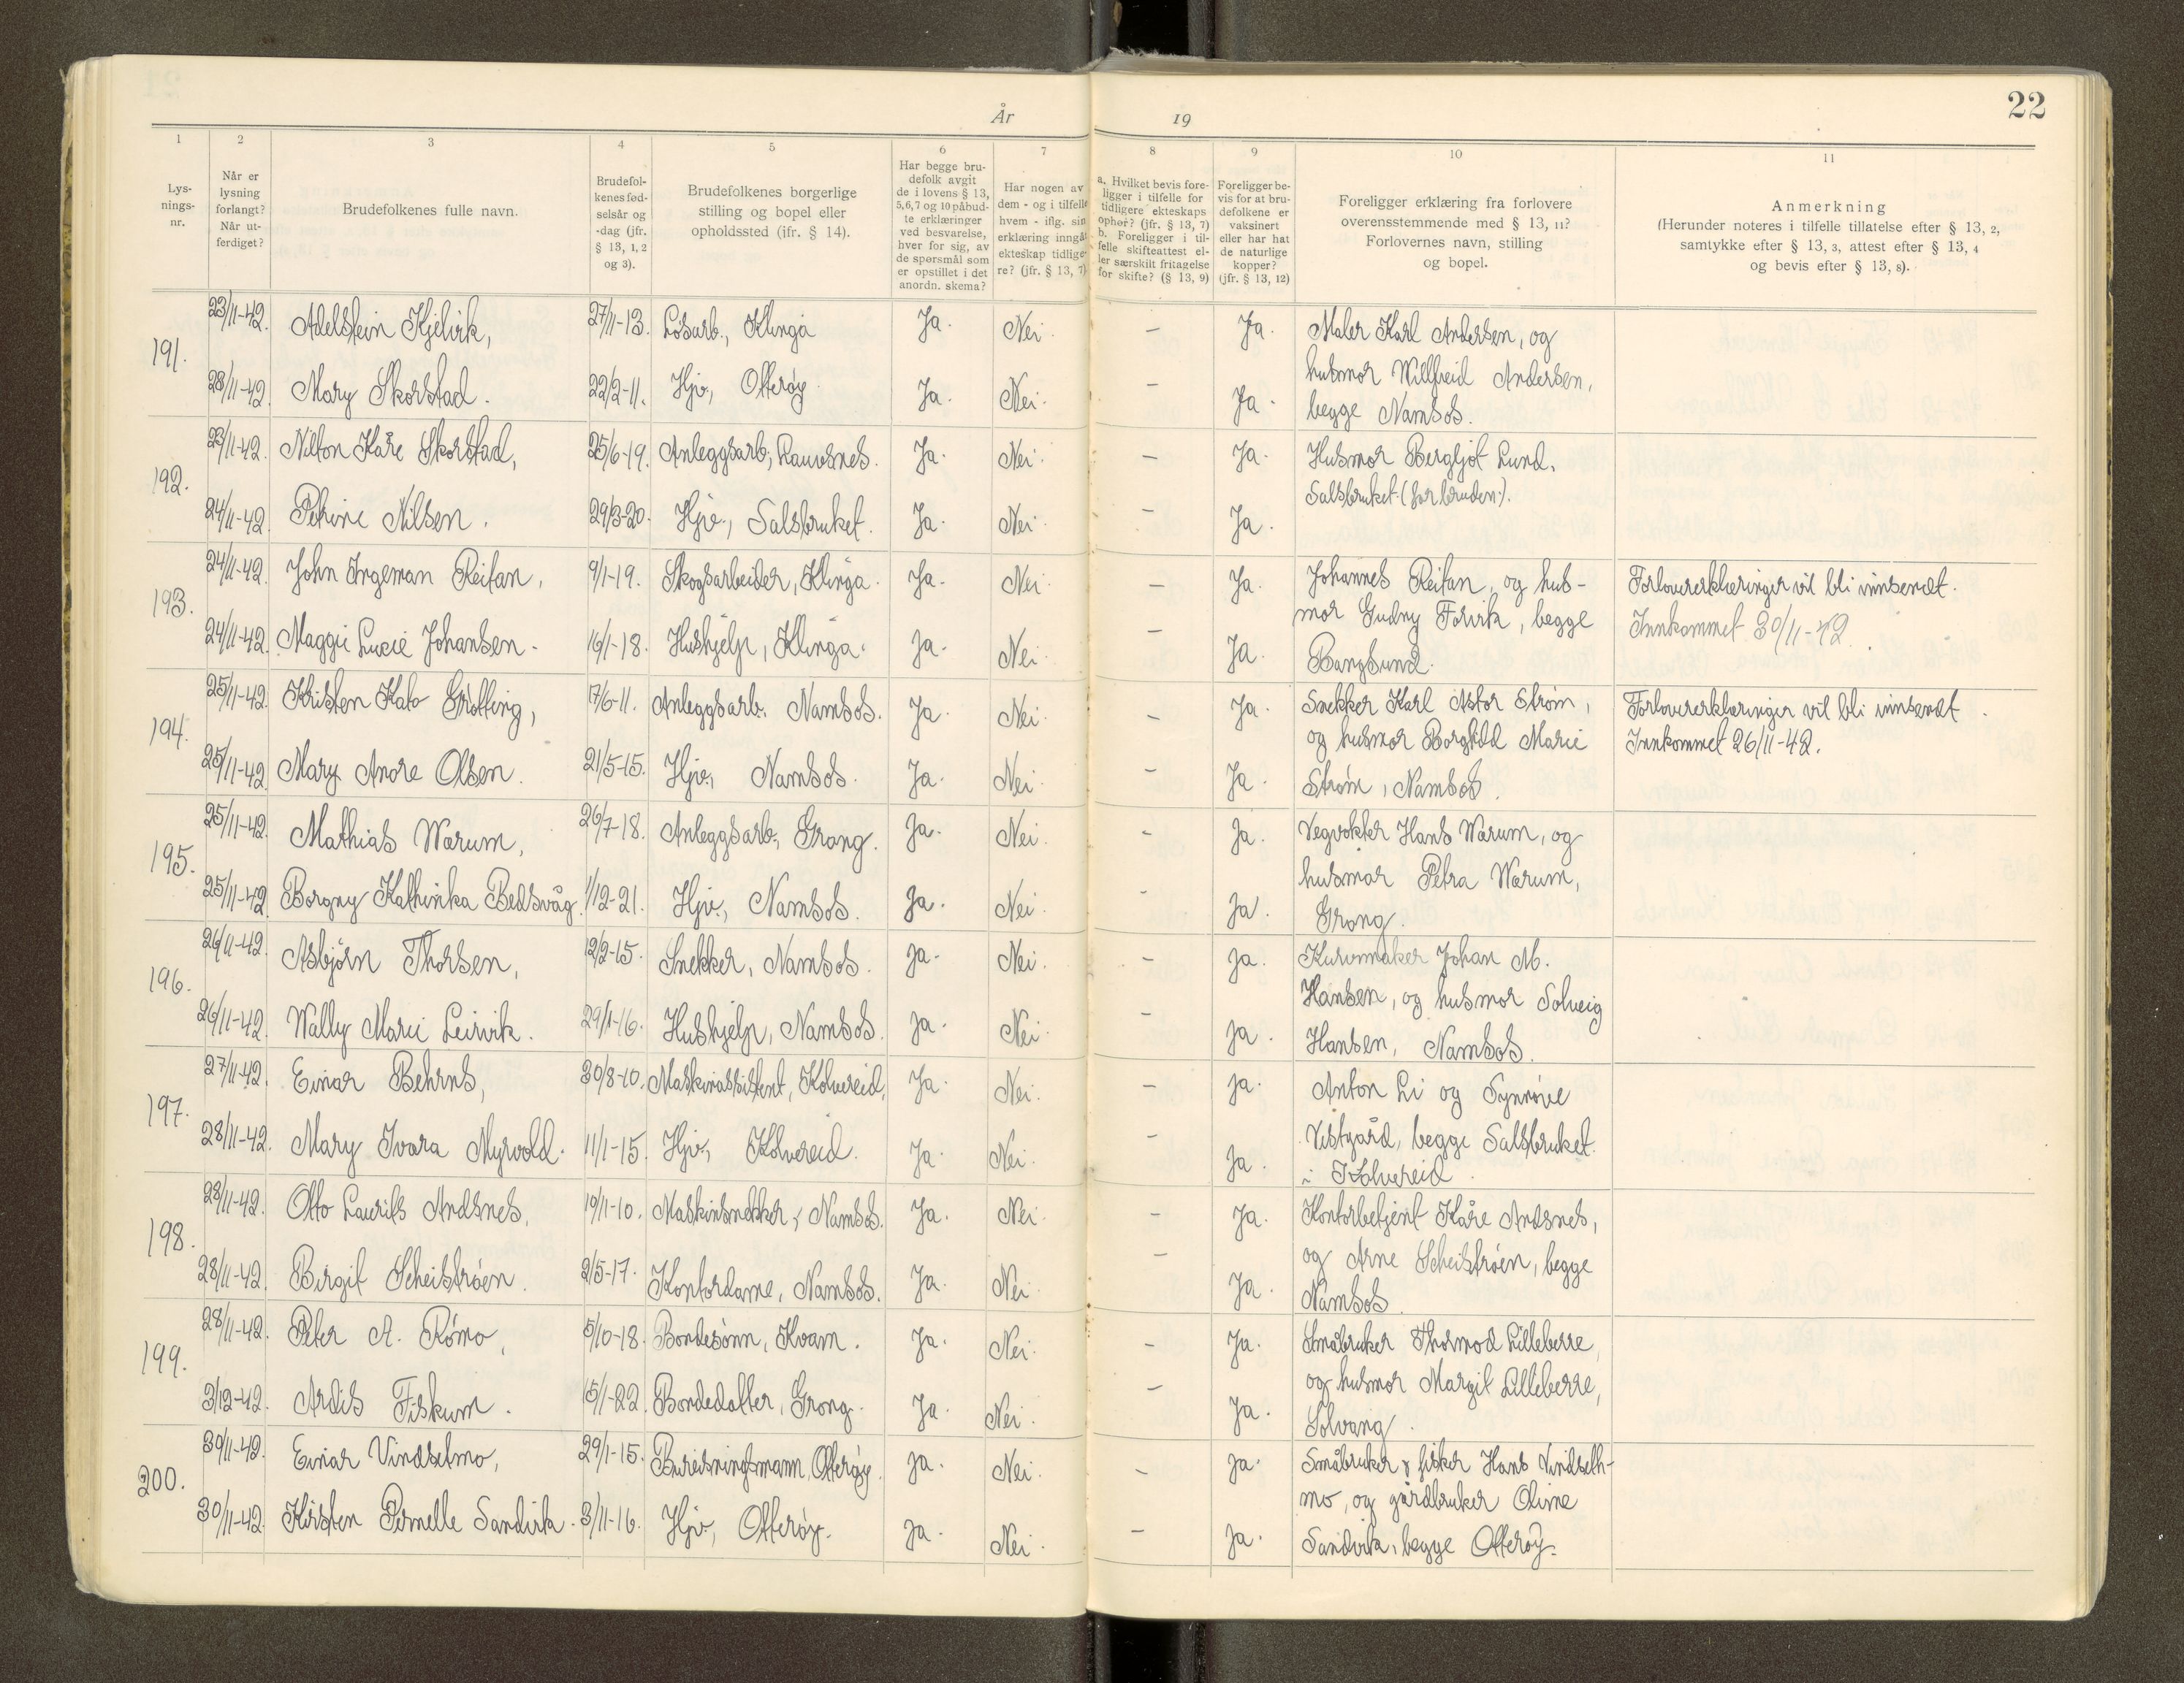 22
År 19
1 2 3 4 5 6 7 8 9 10 11
Lys-
nings-
nr.
Når er
lysning
forlangt?
Når ut-
ferdiget?
Brudefolkenes fulle navn.
Brudefol-
kenes fød-
selsår og
-dag (jfr.
§ 13, 1, 2
og 3).
Brudefolkenes borgerlige
stilling og bopel eller
opholdssted (jfr. § 14).
Har begge bru-
defolk avgit
de i lovens § 13,
5,6,7 og 10 påbud-
te erklæringer
ved besvarelse,
hver for sig, av
de spørsmål som
er opstillet i det
anordn. skema?
Har nogen av
dem - og i tilfelle
hvem - iflg. sin
erklæring inngåt
ekteskap tidlige-
re? (jfr. § 13, 7)
a. Hvilket bevis fore-
ligger i tilfelle for
tidligere ekteskaps
ophør? (jfr. § 13, 7)
b. Foreligger i til-
felle skifteattest el-
ler særskilt fritagelse
for skifte? (§ 13, 9)
Foreligger be-
vis for at bru-
defolkene er
vaksinert
eller har hat
de naturlige
kopper?
(jfr. § 13, 12)
Foreligger erklæring fra forlovere
overensstemmende med § 13, 11?
Forlovernes navn, stilling
og bopel.
Anmerkning
(Herunder noteres i tilfelle tillatelse efter § 13, 2,
samtykke efter § 13, 3, attest efter § 13, 4
og bevis efter § 13, 8).
191.
23/11-42. Adelstein Kjelvik, 27/11-13. Løsarb., Klinga Ja. Nei. – Ja.
28/11-42. Mary Skorstad. 22/2-11. Hjv., Otterøy. Ja. Nei. – Ja.
Maler Karl Andersen, og
husmor Willfreid Andersen,
begge Namsos.
192.
23/11-42. Nilton Kåre Skorstad, 25/6-19. Anleggsarb., Lauvsnes. Ja. Nei. – Ja.
24/11-42. Petrine Nilsen. 29/3-20. Hjv., Salsbruket. Ja. Nei. – Ja.
Husmor Bergljot Lund,
Salsbruket. (for bruden).
193.
24/11-42. John Ingeman Reitan, 9/1-19. Skogsarbeider, Klinga. Ja. Nei. – Ja.
24/11-42. Maggie Lucie Johansen. 16/1-18. Hushjelp, Klinga. Ja. Nei. – Ja.
Johannes Reitan, og hus-
mor Gudny Forvik, begge
Bangsund.
Forlovererklæringer vil bli innsendt.
Innkommet 30/11-42.
194.
25/11-42. Kristen Kato Grøtting, 17/6-11. Anleggsarb. Namsos. Ja. Nei. – Ja.
25/11-42. Mary Anore Olsen. 21/5-15. Hjv., Namsos. Ja. Nei. – Ja.
Snekker Karl Astor Strøm,
og husmor Borghild Marie
Strøm, Namsos.
Forlovererklæringer vil bli innsendt.
Innkommet 26/11-42.
195.
25/11-42. Mathias Warum, 26/7-18. Anleggsarb., Grong. Ja. Nei. – Ja.
25/11-42. Borgny Kathinka Bedsvåg. 1/12-21. Hjv., Namsos. Ja. Nei. – Ja.
Vegvokter Hans Warum, og
husmor Petra Warum,
Grong.
196.
26/11-42. Asbjørn Thorsen, 12/2-15. Snekker, Namsos. Ja. Nei. – Ja.
26/11-42. Wally Marie Leirvik. 29/1-16. Hushjelp, Namsos. Ja. Nei. – Ja.
Kurvmaker Johan M.
Hansen, og husmor Solveig
Hansen, Namsos.
197.
27/11-42. Einar Behrns, 30/8-10. Maskinassistent, Kolvereid. Ja. Nei. – Ja.
28/11-42. Mary Ivara Myrvold. 11/1-15. Hjv., Kolvereid. Ja. Nei. – Ja.
Anton Li og Synnøve
Vistgård, begge Salsbruket
i Kolvereid.
198.
28/11-42. Otto Laurits Andsnes, 19/11-10. Maskinsnekker, Namsos. Ja. Nei. – Ja.
28/11-42. Birgit Scheistrøen. 2/5-17. Kontordame, Namsos. Ja. Nei. – Ja.
Kontorbetjent Kåre Andsnes,
og Arne Scheistrøen, begge
Namsos.
199.
28/11-42. Peter A. Rømo, 5/10-18. Bondesønn, Kvam. Ja. Nei. – Ja.
3/12-42. Ardis Fiskum. 15/1-22. Bondedatter, Grong. Ja. Nei. – Ja.
Småbruker Thormod Lilleberre,
og husmor Margit Lilleberre,
Solvang.
200.
30/11-42. Einar Vindsetmo, 29/1-15. Bureisningsmann, Otterøy. Ja. Nei. – Ja.
30/11-42. Kirsten Pernelle Sandvik. 3/11-16. Hjv., Otterøy. Ja. Nei. – Ja.
Småbruker & fisker Hans Vindseth-
mo, og gårdbruker Oline
Sandvik, begge Otterøy.